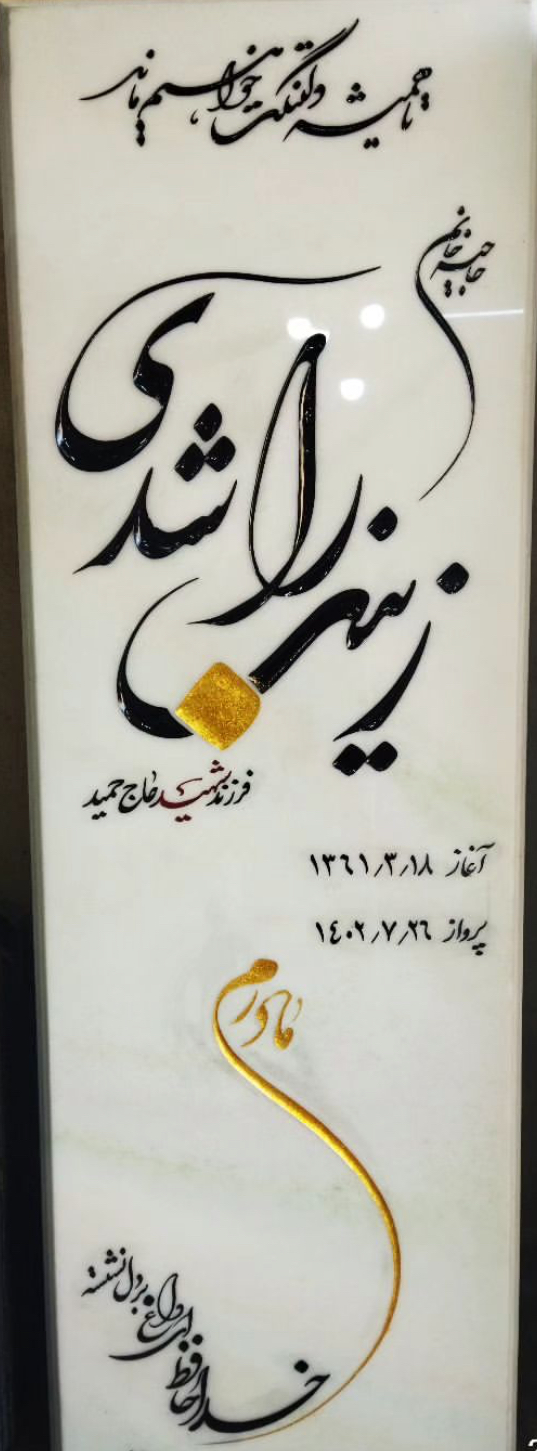 تا همیشه دلتنگت خواهیم ماند
حاجیه خانم
زینب راشدی
فرزند شهید حاج حمید
آغاز ۱۳۶۱/۳/۱۸
پرواز ۱۴۰۲/۷/۲۶
مادرم
خداحافظ ای داغ بر دل نشسته